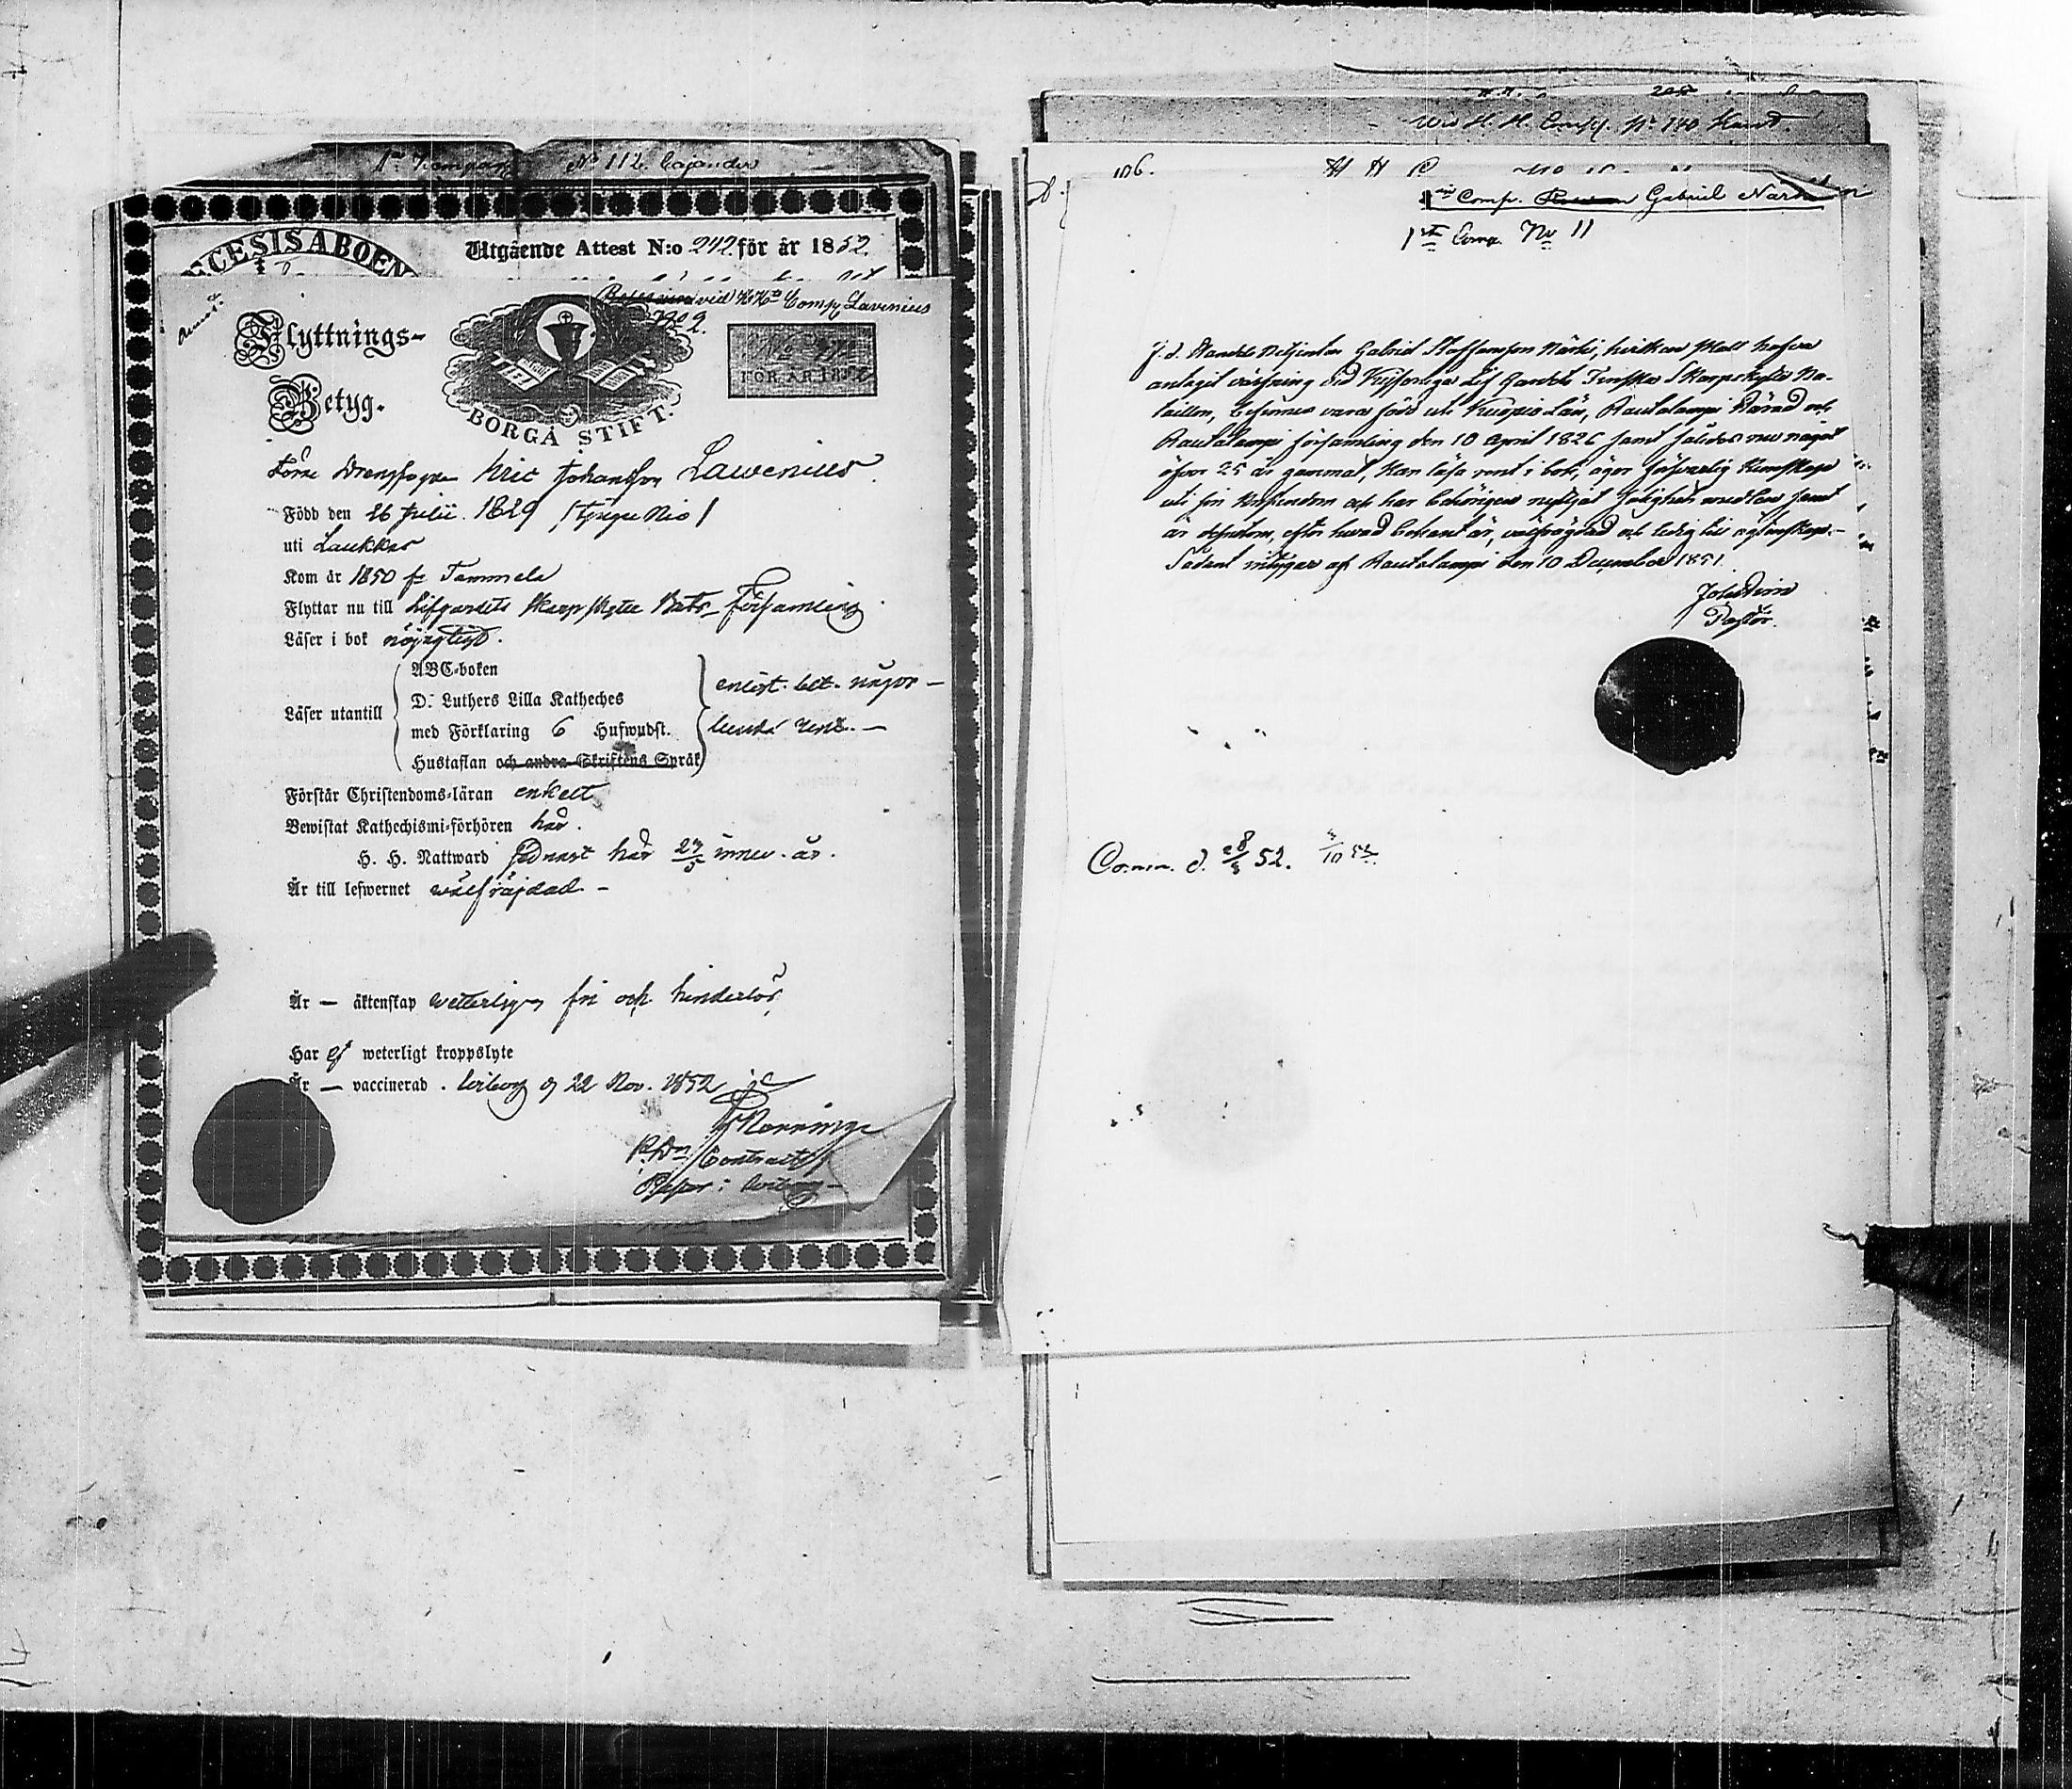 1sta Kompag. No 112. Cajander
ECESIS ABOEN
Utgående Attest N:o 242. för år 1852.
vid H. H:s Comp. Lavenius
No 2.
Flyttnings-
Betyg.
BORGÅ STIFT.
No
FÖR ÅR 1852
Förre Drengfogden Eric Johansson Lawenius
Född den 26 Julii 1829 / Tjugu Nio /
uti Laukkas
Kom år 1850 fr Tammela
Flyttar nu till Lifgardets Skarpskytte Bats Församling
Läser i bok nöjagtigt.
Läser utantill
ABC-boken
D:r Luthers Lilla Katheches
med Förklaring 6 Hufwudst.
Hustaflan och andra Skriftens Språk
enligt bet. någor-
lunda rent. —
Förstår Christendoms-läran enkelt
Bewistat Kathechismi-förhören här.
H. H. Nattward sednast här 23/5 innev. år.
Är till lefwernet wälfräjdad —
Är — äktenskap wetterligen fri och hinderlös
Har ej weterligt kroppslyte
Är — vaccinerad. Wiborg d 22 Nov. 1852
Contracts
Pastor i Wiborg —
H. H. Comp. No 140
106.
1sta Comp. Gabriel Närhinen
1sta Comp. No 11
Gabriel Staffansson Närhi, hvilken skall hafva
antagit värfning vid Kejserliga Lif Gardets Finska Skarpskytte Ba-
taillon, befinnes vara född uti Kuopio Län, Rautalampi Härad och
Rautalampi församling den 10 April 1826 samt således nu något
öfver 25 år gammal, kan läsa rent i bok, äger försvarlig kunskap
uti sin Kristendom och har behörigen nyttjat Salighets medlen samt
är dessutom, efter hvad bekant är, välfrägdad och ledig till ägtenskap. —
Sådant intygar af Rautalampi den 10 December 1851.
Pastor.
Comm. d. 28/3 52. 3/10 52.